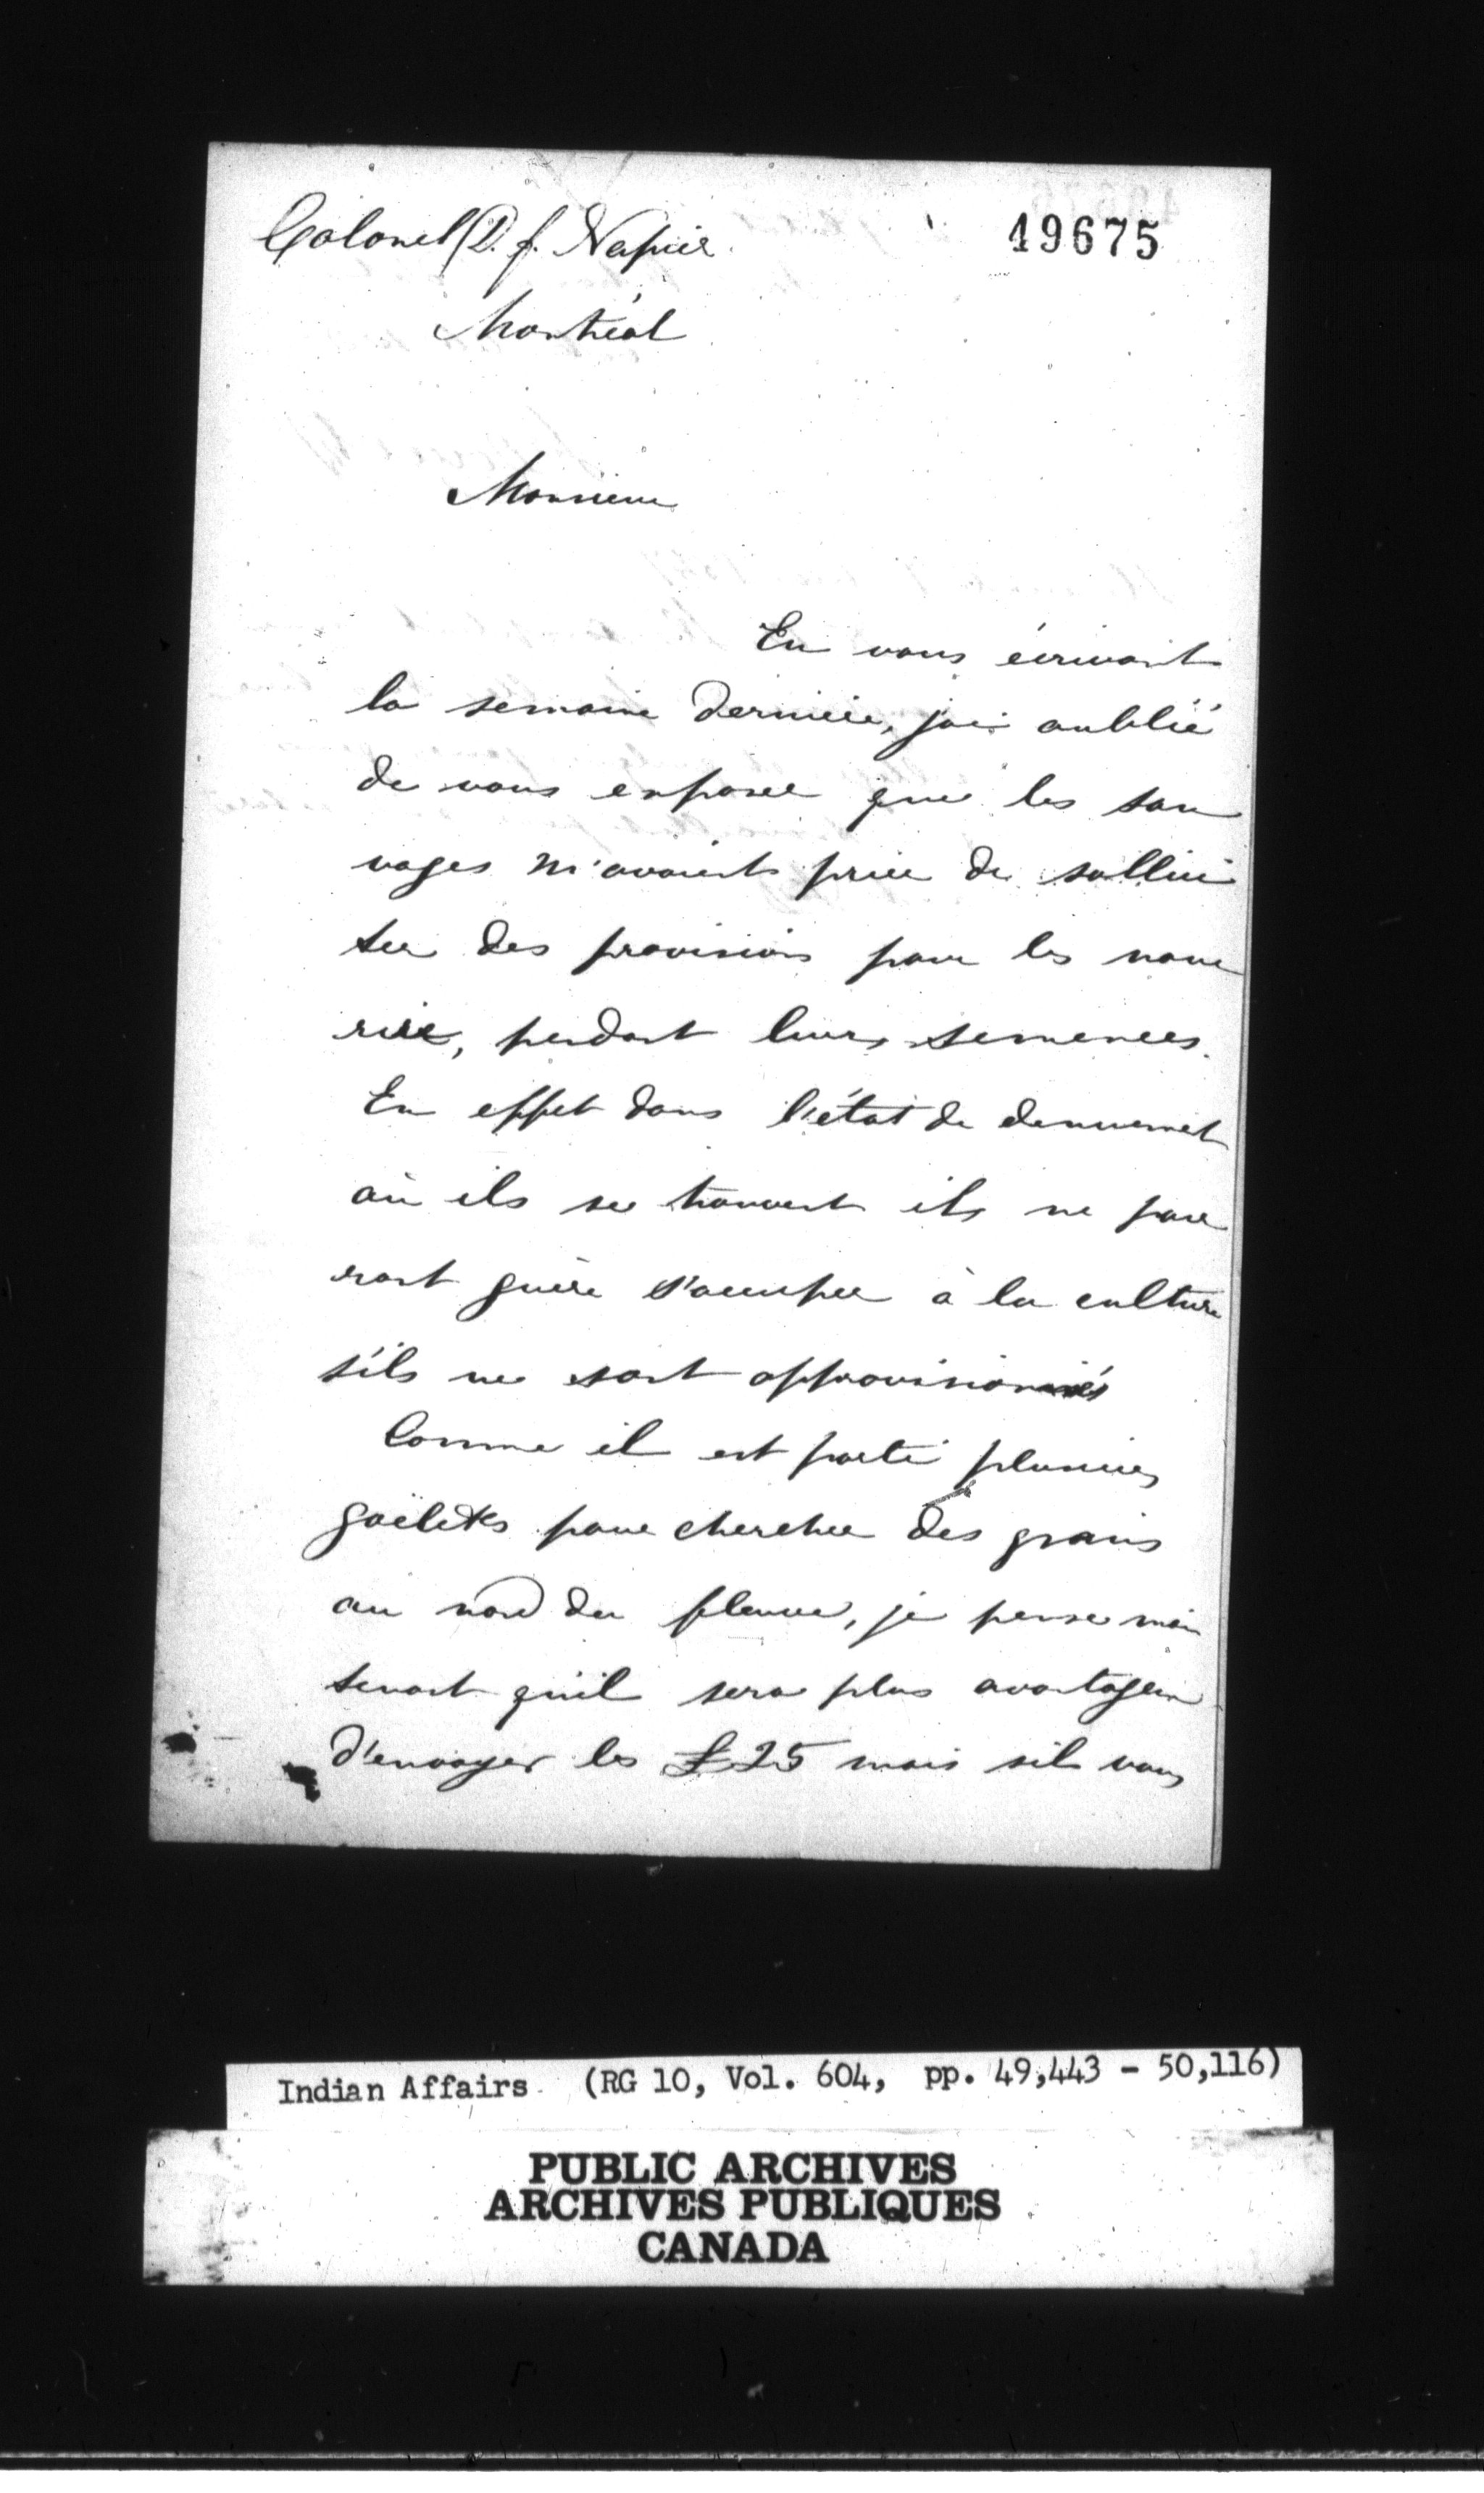 Colonel D. J. Napier
19675
Montréal
Monsieur
En vous écrivant
la semaine dernière, jai oublié
de vous exposer que les sau
vages m'avaient prié de sollici
ter des provisions pour les nour
rire, pendant leurs semences.
En effet dans l'état de denuement
où ils se trouvent ils ne pour
ront guère s'occuper à la culture
s'ils ne sont approvisionnés
Comme il est parti plusieurs
goëlettes pour chercher des grains
au nord du fleuve, je pense main
tenant qu'il sera plus avantageux
d'envoyer les £25 mais sil vous
Indian Affairs (RG 10, Vol. 604, pp. 49,443 - 50,116)
PUBLIC ARCHIVES
ARCHIVES PUBLIQUES
CANADA